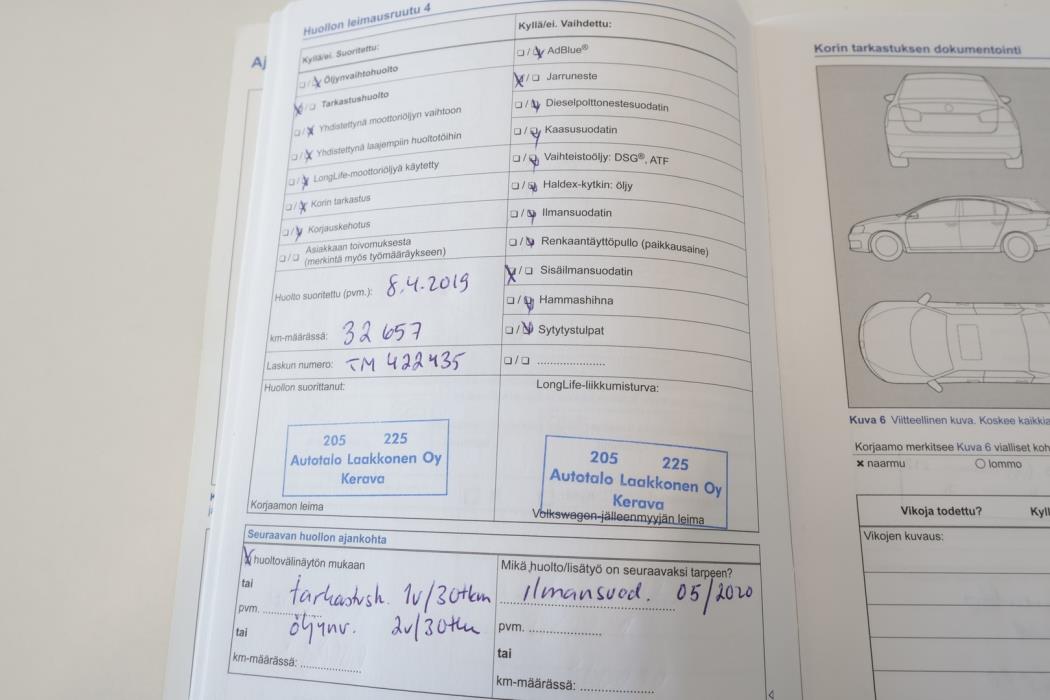 Aj
Huollon leimausruutu 4
Kyllä/ei. Suoritettu:
Öljynvaihtohuolto
Tarkastushuolto
Yhdistettynä moottoriöljyn vaihtoon
Yhdistettynä laajempiin huoltotöihin
LongLife-moottoriöljyä käytetty
Korin tarkastus
Korjauskehotus
Asiakkaan toivomuksesta
(merkintä myös työmääräykseen)
Huolto suoritettu (pvm.): 8.4.2019
km-määrässä: 32 657
Laskun numero: TM 422435
Huollon suorittanut:
205 225
Autotalo Laakkonen Oy
Kerava
Korjaamon leima
Kyllä/ei. Vaihdettu:
AdBlue®
Jarruneste
Dieselpolttonestesuodatin
Kaasusuodatin
Vaihteistoöljy: DSG®, ATF
Haldex-kytkin: öljy
Ilmansuodatin
Renkaantäyttöpullo (paikkausaine)
Sisäilmansuodatin
Hammashihna
Sytytystulpat
LongLife-liikkumisturva:
205 225
Autotalo Laakkonen Oy
Kerava
Volkswagen-jälleenmyyjän leima
Seuraavan huollon ajankohta
huoltovälinäytön mukaan
tai
tarkastush. 1v/30tkm
pvm.
öljynv. 2v/30tkm
tai
km-määrässä:
Mikä huolto/lisätyö on seuraavaksi tarpeen?
ilmansuod. 05/2020
pvm.
tai
km-määrässä:
Korin tarkastuksen dokumentointi
Kuva 6 Viitteellinen kuva. Koskee kaikkia
Korjaamo merkitsee Kuva 6 vialliset koh
× naarmu ○ lommo
Vikoja todettu? Kyll
Vikojen kuvaus: